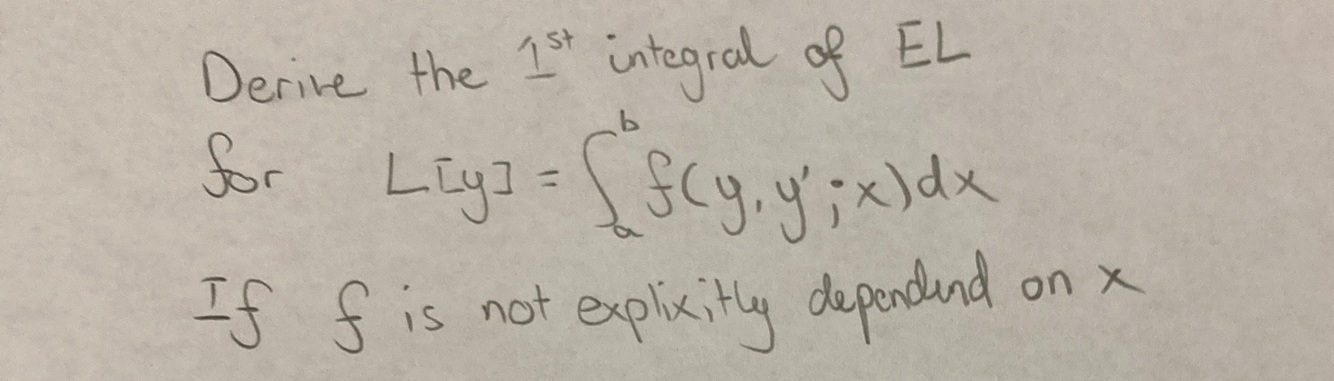 Derive the 1st integral of EL
for L[y] = ∫_a^b f(y, y'; x)dx
If f is not explixitly dependend on x